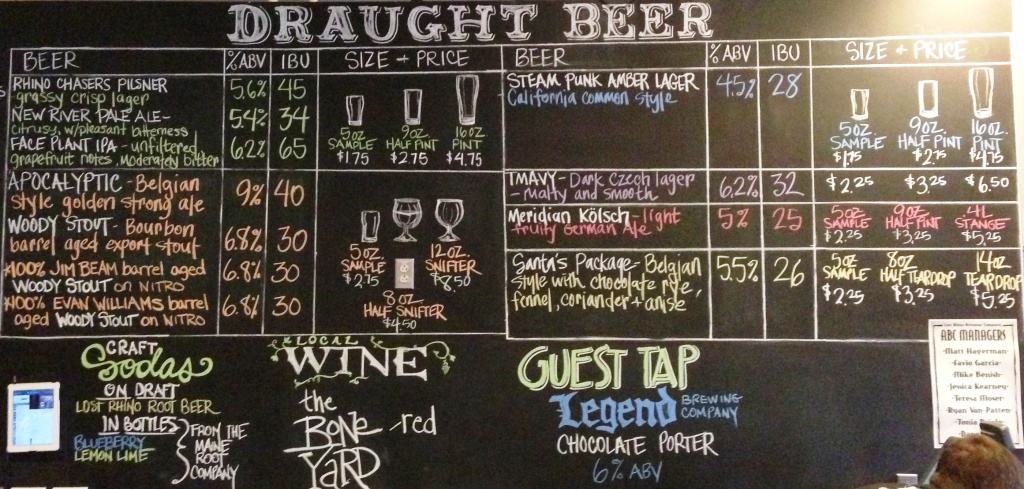 DRAUGHT BEER
BEER %ABV IBU SIZE + PRICE
RHINO CHASERS PILSNER 5.6% 45
grassy crisp lager
NEW RIVER PALE ALE- 5.4% 34
citrusy, w/pleasant bitterness
FACE PLANT IPA - unfiltered, 6.2% 65
grapefruit notes, moderately bitter
5OZ 9OZ 16OZ
SAMPLE HALF PINT PINT
$1.75 $2.75 $4.75
APOCALYPTIC - Belgian 9% 40
style golden strong ale
WOODY STOUT - Bourbon 6.8% 30
barrel aged export stout
*100% JIM BEAM barrel aged 6.8% 30
WOODY STOUT on NITRO
*100% EVAN WILLIAMS barrel 6.8% 30
aged WOODY STOUT on NITRO
5OZ 12OZ
SAMPLE SNIFTER
$2.75 $8.50
8OZ
HALF SNIFTER
$4.50
BEER %ABV IBU SIZE + PRICE
STEAM PUNK AMBER LAGER 4.5% 28
California common style
5OZ. 9OZ. 16OZ.
SAMPLE HALF PINT PINT
$1.75 $2.75 $4.75
TMAVY - Dark Czech lager 6.2% 32 $2.25 $3.25 $6.50
- malty and smooth
Meridian Kölsch - light 5% 25
fruity German Ale
5OZ 9OZ 4L
SAMPLE HALF PINT STANGE
$2.25 $3.25 $5.25
Santa's Package - Belgian 5.5% 26
style with chocolate rye,
fennel, coriander + anise
5OZ 8OZ 14OZ
SAMPLE HALF TEARDROP TEARDROP
$2.25 $3.25 $5.25
CRAFT
Sodas
ON DRAFT
LOST RHINO ROOT BEER
IN BOTTLES
BLUEBERRY
LEMON LIME
FROM THE
MAINE
ROOT
COMPANY
LOCAL
WINE
the
BONE
YARD
-red
GUEST TAP
Legend BREWING
COMPANY
CHOCOLATE PORTER
6% ABV
ABC MANAGERS
-Matt Hagerman-
-Favio Garcia-
-Mike Benish-
-Jessica Kearney-
-Teresa Moser-
-Ryan Van-Patten-